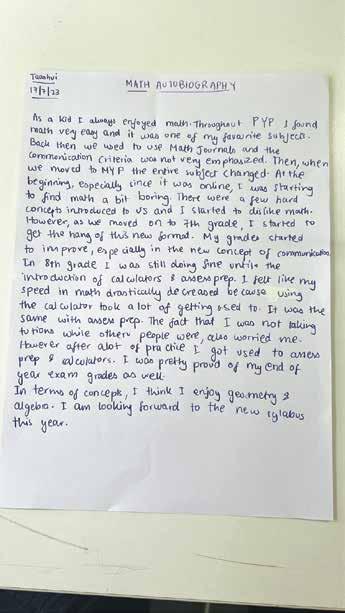 Tanshvi
17/7/23
MATH AUTOBIOGRAPHY
As a kid I always enjoyed math. Throughout PYP I found
math very easy and it was one of my favourite subjects.
Back then we used to use Math Journals and the
communication criteria was not very emphasized. Then, when
we moved to MYP the entire subject changed. At the
beginning, especially since it was online, I was starting
to find math a bit boring. There were a few hard
concepts introduced to us and I started to dislike math.
However, as we moved on to 7th grade, I started to
get the hang of this new format. My grades started
to improve, especially in the new concept of communication.
In 8th grade I was still doing fine until the
introduction of calculators & assessprep. I felt like my
speed in math drastically decreased because using
the calculator took a lot of getting used to. It was the
same with assess prep. The fact that I was not taking
tutions while other people were, also worried me.
However after alot of practice I got used to assess
prep & calculators. I was pretty proud of my end of
year exam grades as well.
In terms of concepts, I think I enjoy geometry &
algebra. I am looking forward to the new sylabus
this year.